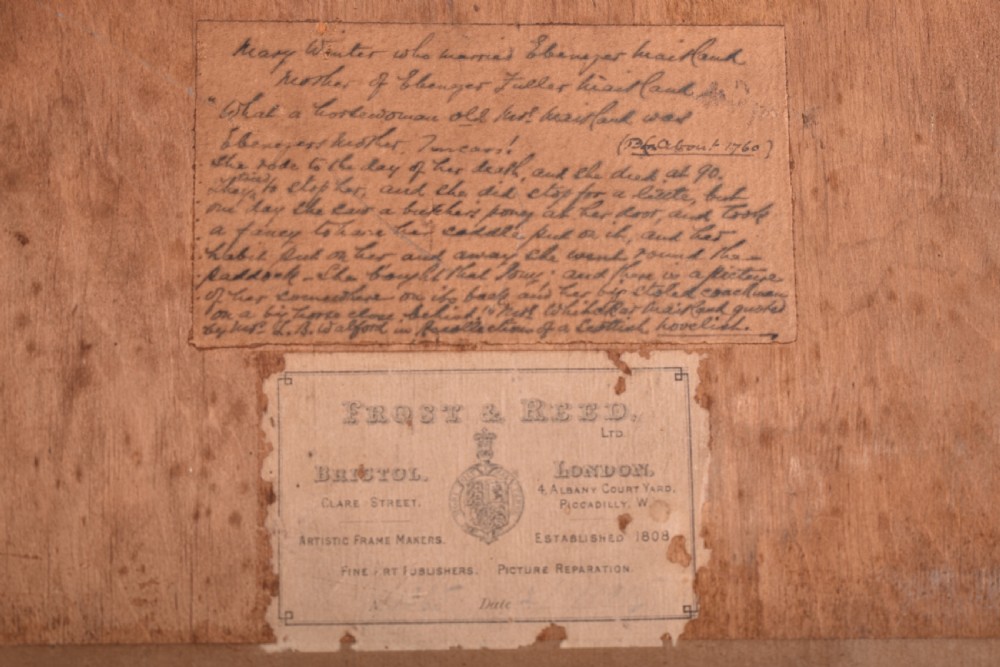 Mary Winter who married Ebenezer Maitland
Mother of Ebenezer Fuller Maitland
"What a horsewoman old Mrs. Maitland was
Ebenezers Mother, I mean!
(Born about 1760)
She rode to the day of her death, and she died at 90.
They tried to stop her, and she did stop for a little, but
one day she saw a butchers poney at her door, and took
a fancy to have her saddle put on it, and her
habit put on her and away she went round the
paddock - She bought that Pony; and there is a picture
of her somewhere on its back and her big stolid coachman
on a big horse close behind" Mrs. Maitland quoted
by Mrs. L. B. Walford in Recollections of a Scottish Novelist.
FROST & REED,
LTD.
BRISTOL. LONDON.
CLARE STREET. 4, ALBANY COURT YARD,
PICCADILLY, W.
ARTISTIC FRAME MAKERS. ESTABLISHED 1808
FINE ART PUBLISHERS. PICTURE REPARATION.
Date